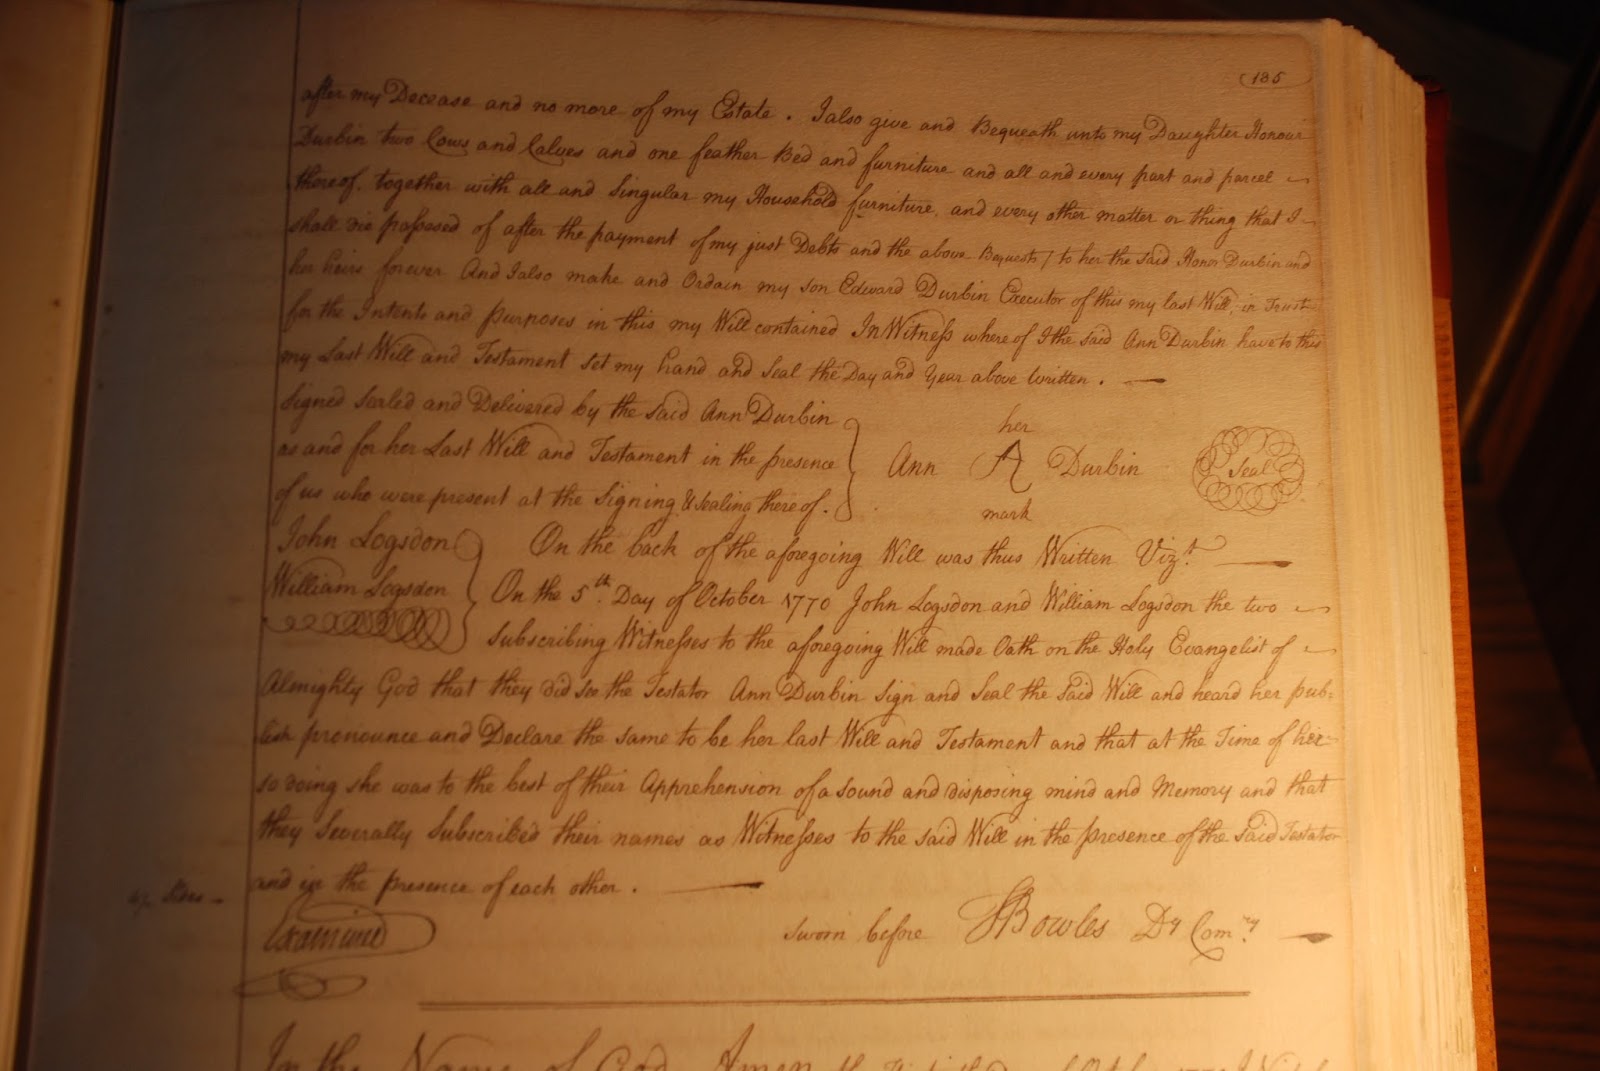 (185
after my Decease and no more of my Estate . I also give and Bequeath unto my Daughter Honour
Durbin two Cows and Calves and one feather Bed and furniture and all and every part and parcel
thereof together with all and singular my Household furniture and every other matter or thing that I
shall die possessed of after the payment of my just Debts and the above Bequests / to her the said Honor Durbin and
her heirs forever And I also make and Ordain my son Edward Durbin Executor of this my last Will, in Trust
for the Intents and purposes in this my Will contained In Witness where of I the said Ann Durbin have to this
my Last Will and Testament set my hand and Seal the Day and Year above Written .
Signed sealed and Delivered by the said Ann Durbin
as and for her Last Will and Testament in the presence
of us who were present at the Signing & sealing there of .
her
Ann A Durbin
mark
Seal
John Logsdon
William Logsdon
On the back of the aforegoing Will was thus Written Vizt.
On the 5th. Day of October 1770 John Logsdon and William Logsdon the two
subscribing Witnesses to the aforegoing Will made Oath on the Holy Evangelist of
Almighty God that they did see the Testator Ann Durbin sign and Seal the said Will and heard her pub=
lish pronounce and Declare the same to be her last Will and Testament and that at the Time of her
so doing she was to the best of their Apprehension of a sound and disposing mind and Memory and that
they Severally Subscribed their names as Witnesses to the said Will in the presence of the said Testator
and in the presence of each other .
Sides
Examined
sworn before Bowles Dy Comry.
In the Name of God Amen